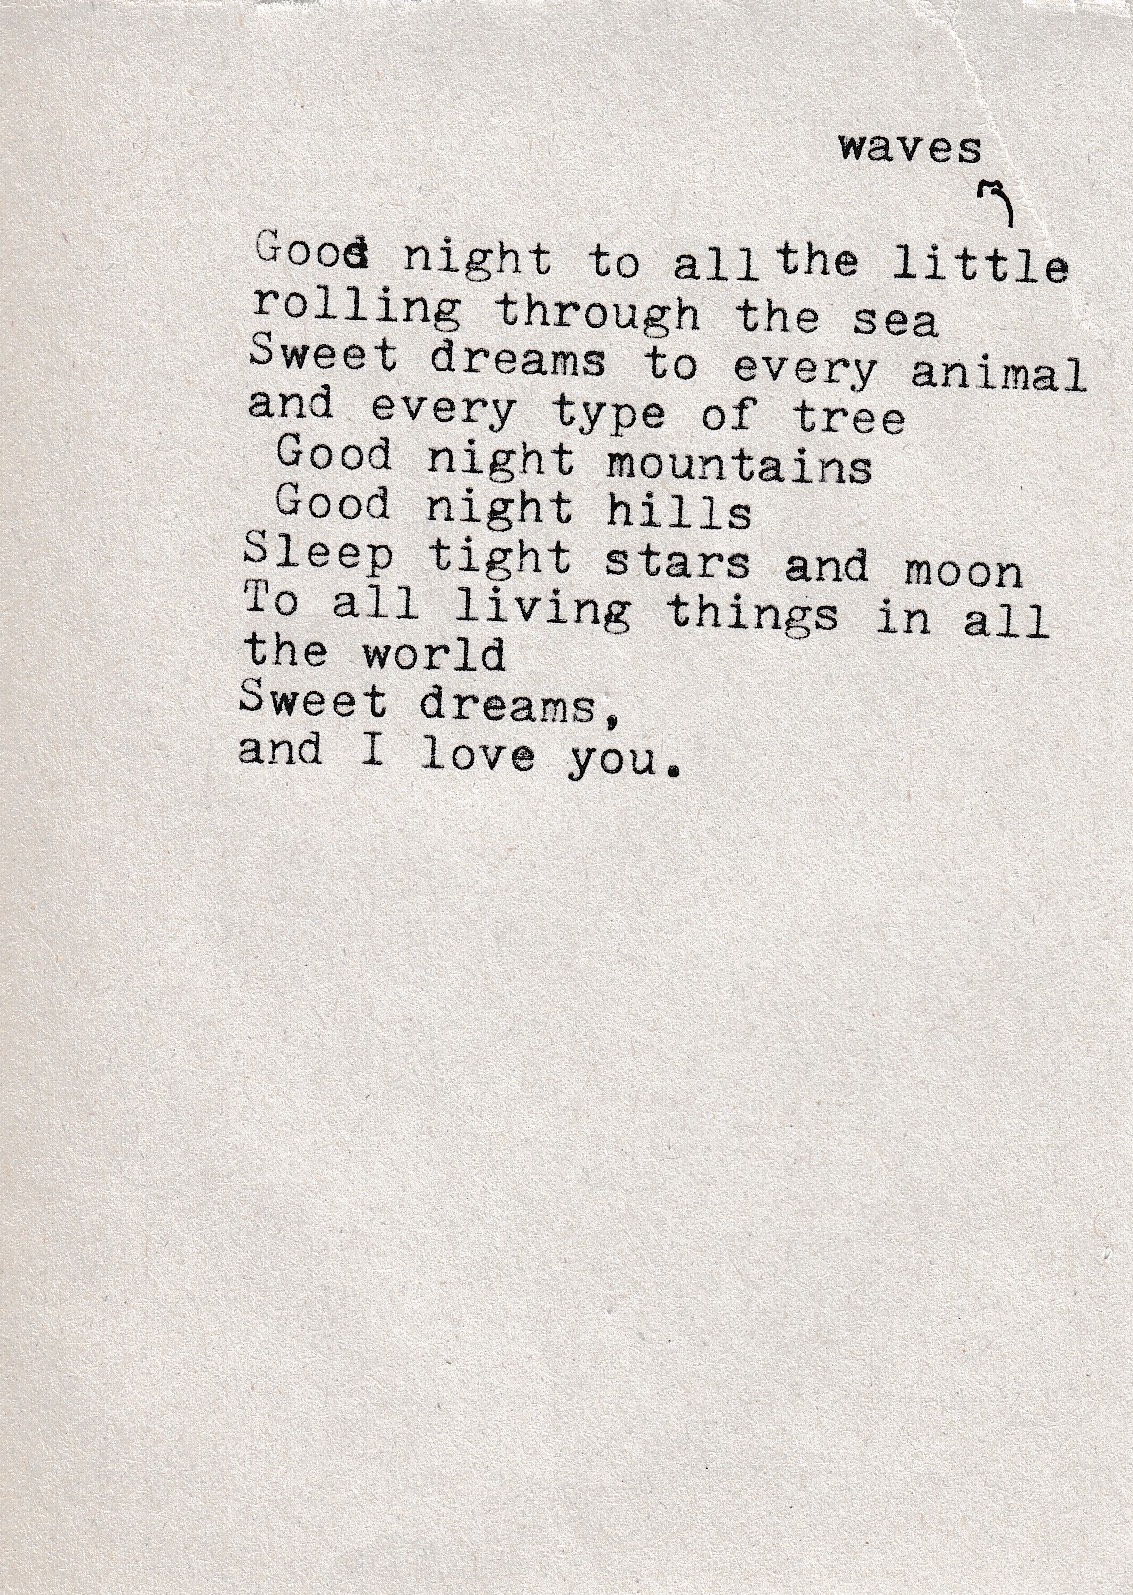 waves
Good night to all the little
rolling through the sea
Sweet dreams to every animal
and every type of tree
Good night mountains
Good night hills
Sleep tight stars and moon
To all living things in all
the world
Sweet dreams,
and I love you.